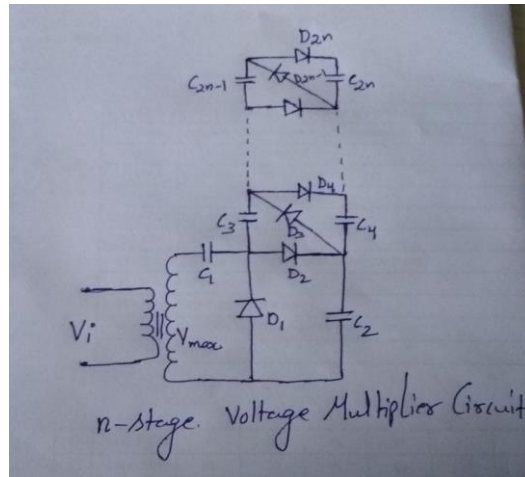 D2n
C2n-1
D2n-1
C2n
D4
C3
D3
C4
C1
D2
Vi
Vmax
D1
C2
n-stage. Voltage Multiplier Circuit